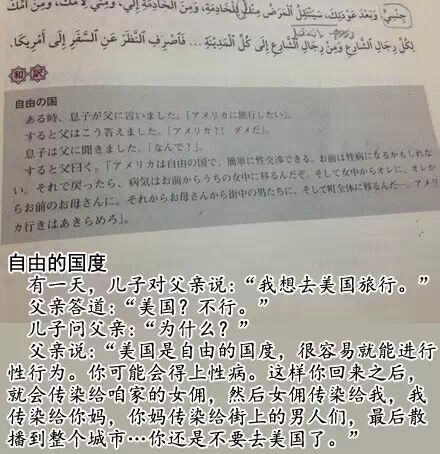 جِنْسِيٌّ وَبَعْدَ عَوْدَتِكَ، سَيَنْتَقِلُ الْمَرَضُ مِنْكَ إِلَى الْخَادِمَةِ، وَمِنَ الْخَادِمَةِ إِلَيَّ، وَمِنِّي لِأُمِّكَ، وَمِنْ أُمِّكَ
لِكُلِّ رِجَالِ الشَّارِعِ وَمِنْ رِجَالِ الشَّارِعِ إِلَى كُلِّ الْمَدِينَةِ ... فَاصْرِفِ النَّظَرَ عَنِ السَّفَرِ إِلَى أَمْرِيكَا.
和訳
自由の国
ある時、息子が父に言いました。「アメリカに旅行したい」。
すると父はこう答えました。「アメリカ?! ダメだ」。
息子は父に聞きました。「なんで?」。
すると父曰く。「アメリカは自由の国で、簡単に性交渉できる。お前は性病になるかもしれな
い。それで戻ったら、病気はお前からうちの女中に移るんだぞ。そして女中からオレに、オレか
らお前のお母さんに。それからお母さんから街中の男たちに、そして町全体に移るんだ…。アメリ
カ行きはあきらめろ」。
自由的国度
有一天，儿子对父亲说：“我想去美国旅行。”
父亲答道：“美国？不行。”
儿子问父亲：“为什么？”
父亲说：“美国是自由的国度，很容易就能进行
性行为。你可能会得上性病。这样你回来之后，
就会传染给咱家的女佣，然后女佣传染给我，我
传染给你妈，你妈传染给街上的男人们，最后散
播到整个城市…你还是不要去美国了。”